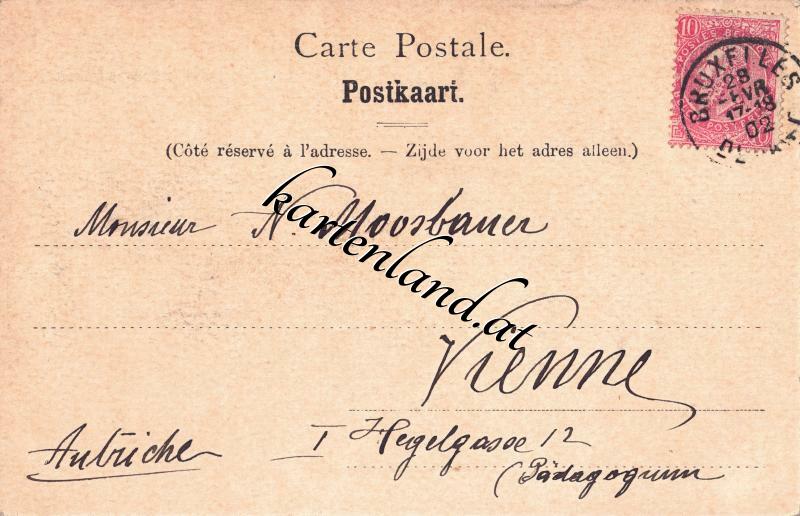 Carte Postale.
Postkaart.
(Côté réservé à l'adresse. — Zijde voor het adres alleen.)
10
POSTES BEL
BRUXELLES
28
FEVR
17-18
02
Monsieur N. Moosbauer
kartenland.at
Vienne
Autriche
I Hegelgasse 12
(Pädagogium